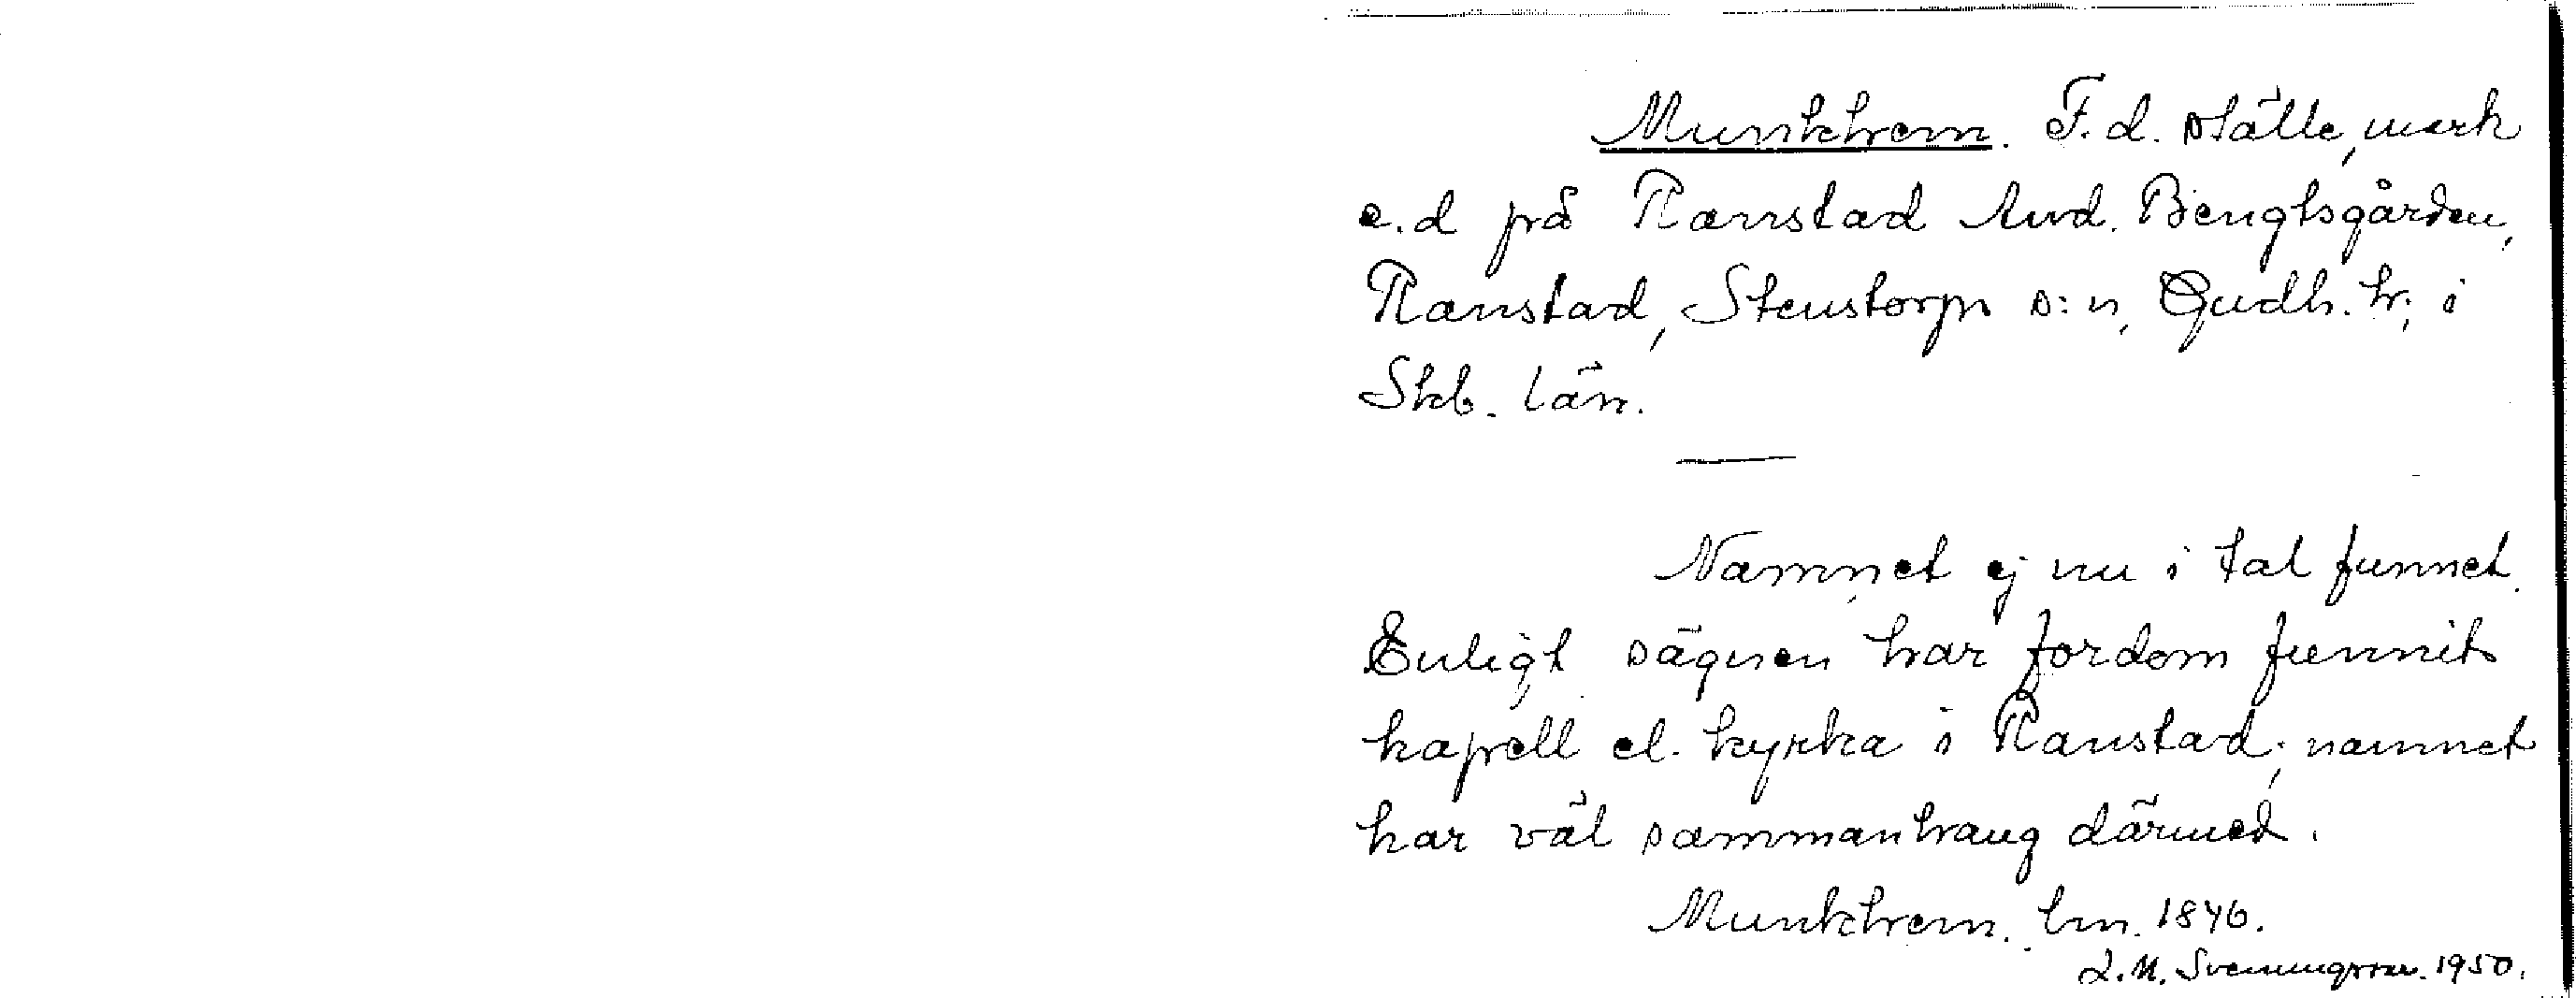 Munkhem. F. d. ställe, mark
e.d på Ranstad And. Bengtsgården,
Ranstad, Stenstorps s:n, Gudh. h; i
Skb. län.
Namnet ej nu i tal funnet.
Enligt sägnen har fordom funnits
kapell el. kyrka i Ranstad; namnet
har väl sammanhang därmed.
Munkhem. hm. 1846.
L.M. Svenungsson. 1950.